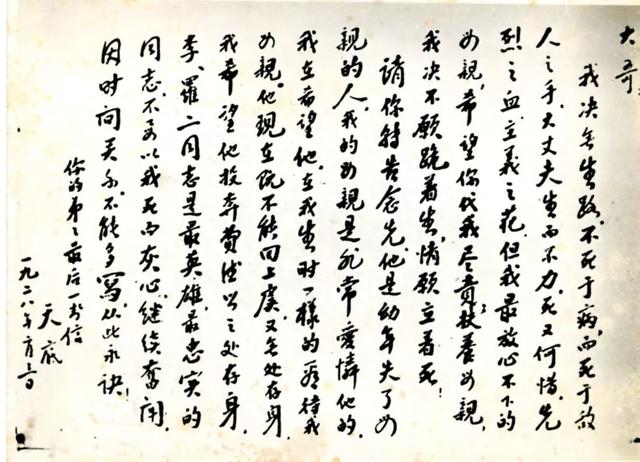 大哥
我决无生路,不死于病,而死于敌
人之手,大丈夫生而不力,死又何惜,先
烈之血,主义之花,但我最放心不下的
母親,希望你代我尽責扶养母親,
我决不願跪着生,情願立着死!
請你特告念先,他是幼年失了母
親的人,我的母親是非常愛憐他的,
我在希望他,在我生时一樣的看待我
母親。他現在既不能回上虞,又无处存身,
我希望他投奔費德以之处存身。
李、羅二同志是最英雄、最忠实的
同志,不要以我死而灰心,継续奮闘,
因时间关系,不能多寫,从此永訣!
你的弟之最后一封信
天底
一九二八年月日